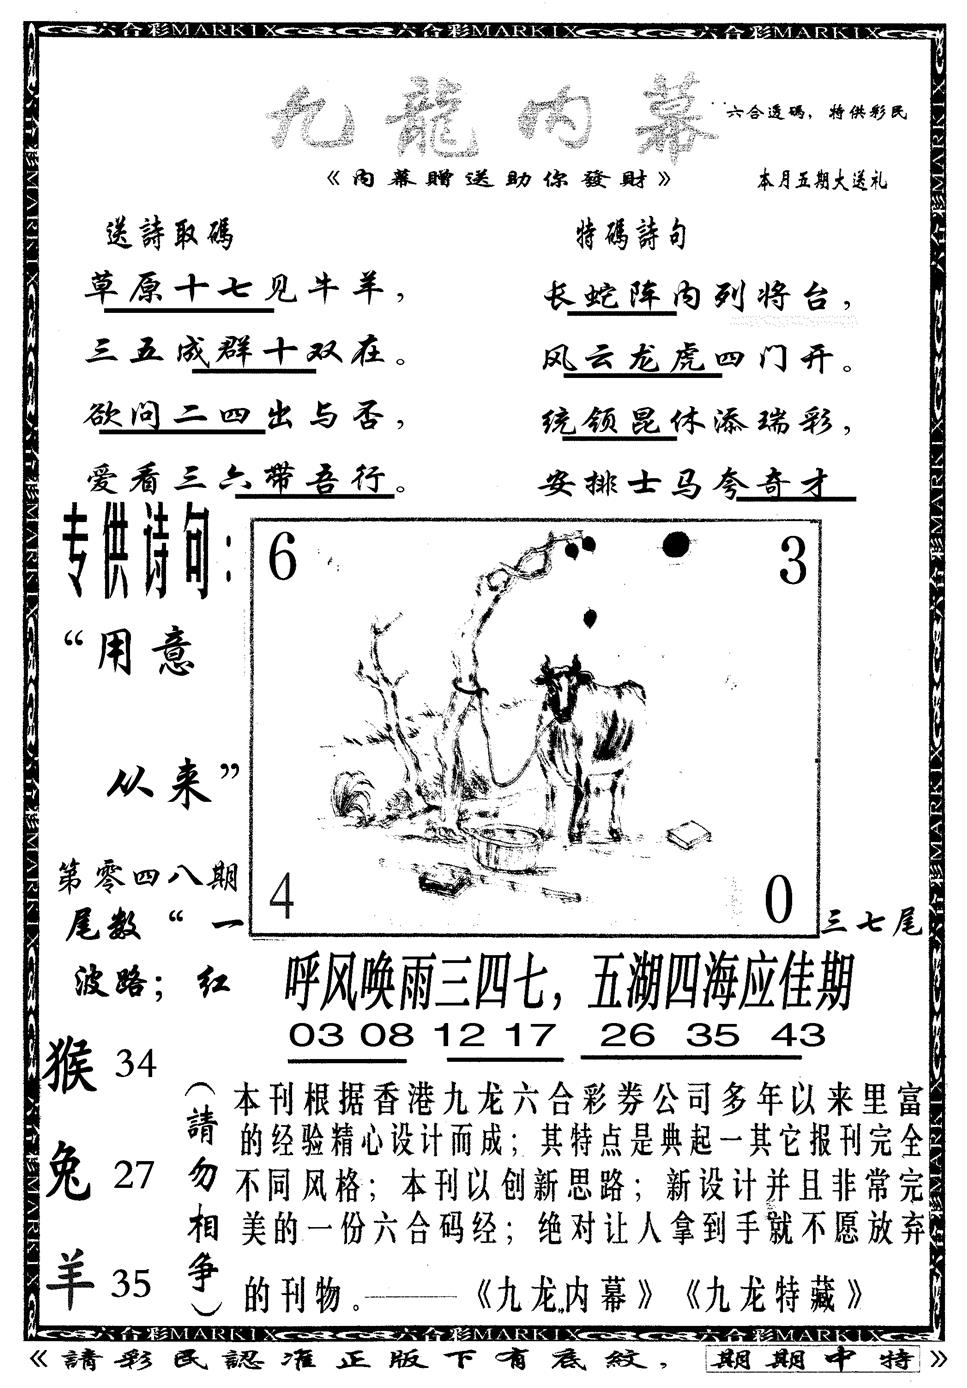 六合彩MARKIX 六合彩MARKIX 六合彩MARKIX
九龍内幕
六合透码，特供彩民
《内幕贈送助你發財》
本月五期大送礼
送詩取碼
草原十七见牛羊，
三五成群十双在。
欲问二四出与否，
爱看三六带吾行。
特碼詩句
长蛇阵内列将台，
风云龙虎四门开。
统领昆休添瑞彩，
安排士马夸奇才
专供诗句：
“用意
从来”
第零四八期
尾数“一
三七尾
波路；红
6 3
4 0
呼风唤雨三四七，五湖四海应佳期
03 08 12 17 26 35 43
猴 34
兔 27
羊 35
（請勿相争）
本刊根据香港九龙六合彩券公司多年以来里富
的经验精心设计而成；其特点是典起一其它报刊完全
不同风格；本刊以创新思路；新设计并且非常完
美的一份六合码经；绝对让人拿到手就不愿放弃
的刊物。———《九龙内幕》《九龙特藏》
六合彩MARKIX 六合彩MARKIX 六合彩MARKIX
《請彩民認准正版下有底紋，期期中特》